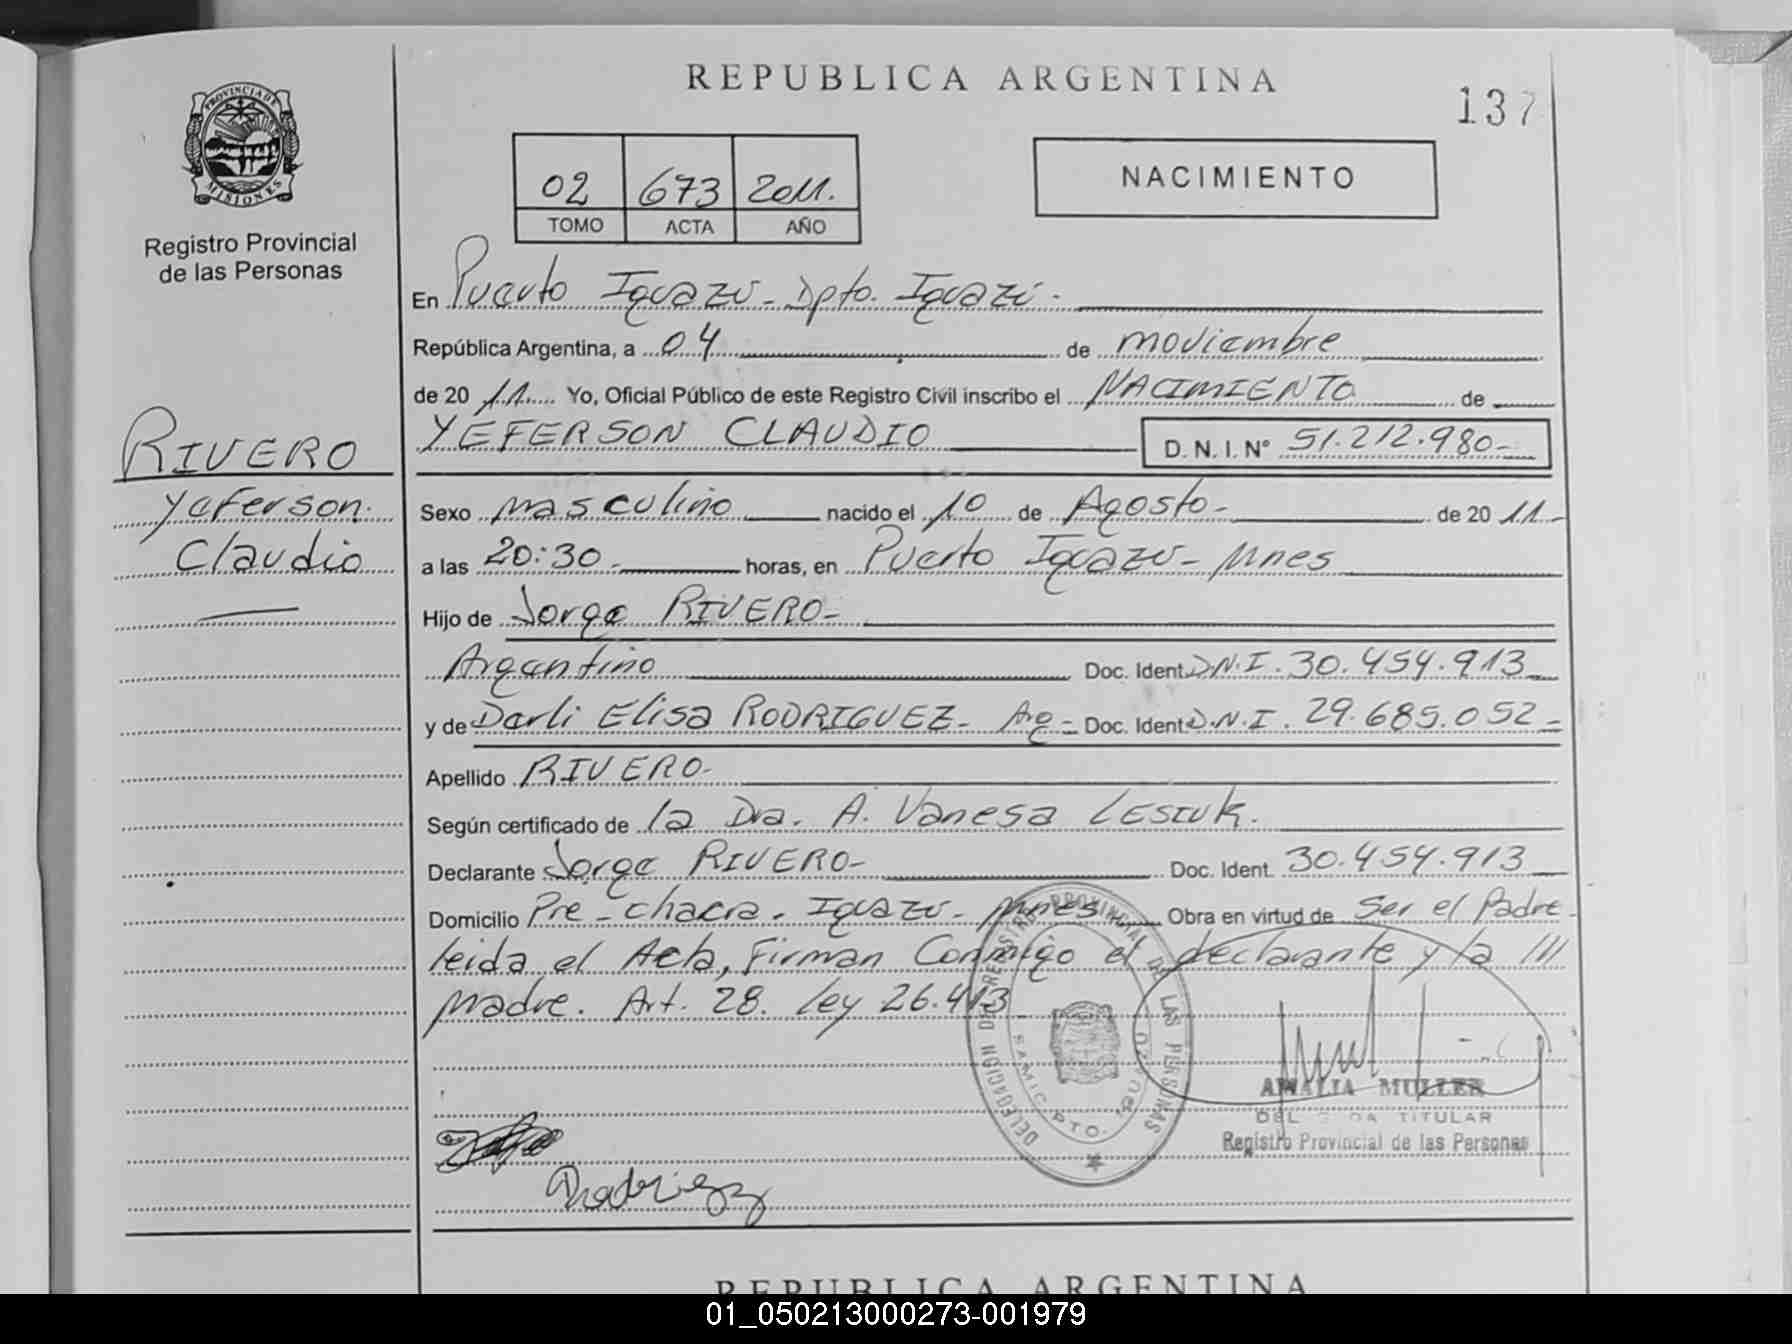 REPUBLICA ARGENTINA
137
PROVINCIA DE MISIONES
Registro Provincial
de las Personas
02 673 2011.
TOMO ACTA AÑO
NACIMIENTO
En Puerto Iguazú - Dpto. Iguazú -
República Argentina, a 04 de noviembre
de 20 11 Yo, Oficial Público de este Registro Civil inscribo el NACIMIENTO de
YEFERSON CLAUDIO D. N. I. Nº 51.212.980-
RIVERO
Yeferson.
Claudio
Sexo masculino nacido el 10 de Agosto - de 20 11
a las 20:30 - horas, en Puerto Iguazú - Mnes
Hijo de Jorge RIVERO -
Argentino Doc. Ident. D.N.I. 30.454.913
y de Darli Elisa RODRIGUEZ - Ag - Doc. Ident. D.N.I. 29.685.052 -
Apellido RIVERO -
Según certificado de la Dra. A. Vanesa LESIUK.
Declarante Jorge RIVERO - Doc. Ident. 30.454.913
Domicilio Pre - chacra. Iguazú - Mnes Obra en virtud de Ser el Padre -
leida el Acta, Firman Conmigo el declarante y la ///
madre. Art. 28. Ley 26.413
DELEGACION DEL REGISTRO PROVINCIAL DE LAS PERSONAS
SAMIC PTO. IGUAZU
AMALIA MULLER
TITULAR
Registro Provincial de las Personas
Rodriguez
REPUBLICA ARGENTINA
01_050213000273-001979